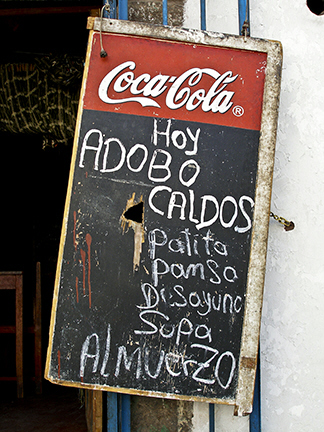 Coca-Cola®
Hoy
ADOBO
CALDOS
Patita
Pansa
Disayuno
Sopa
AlMUERZO